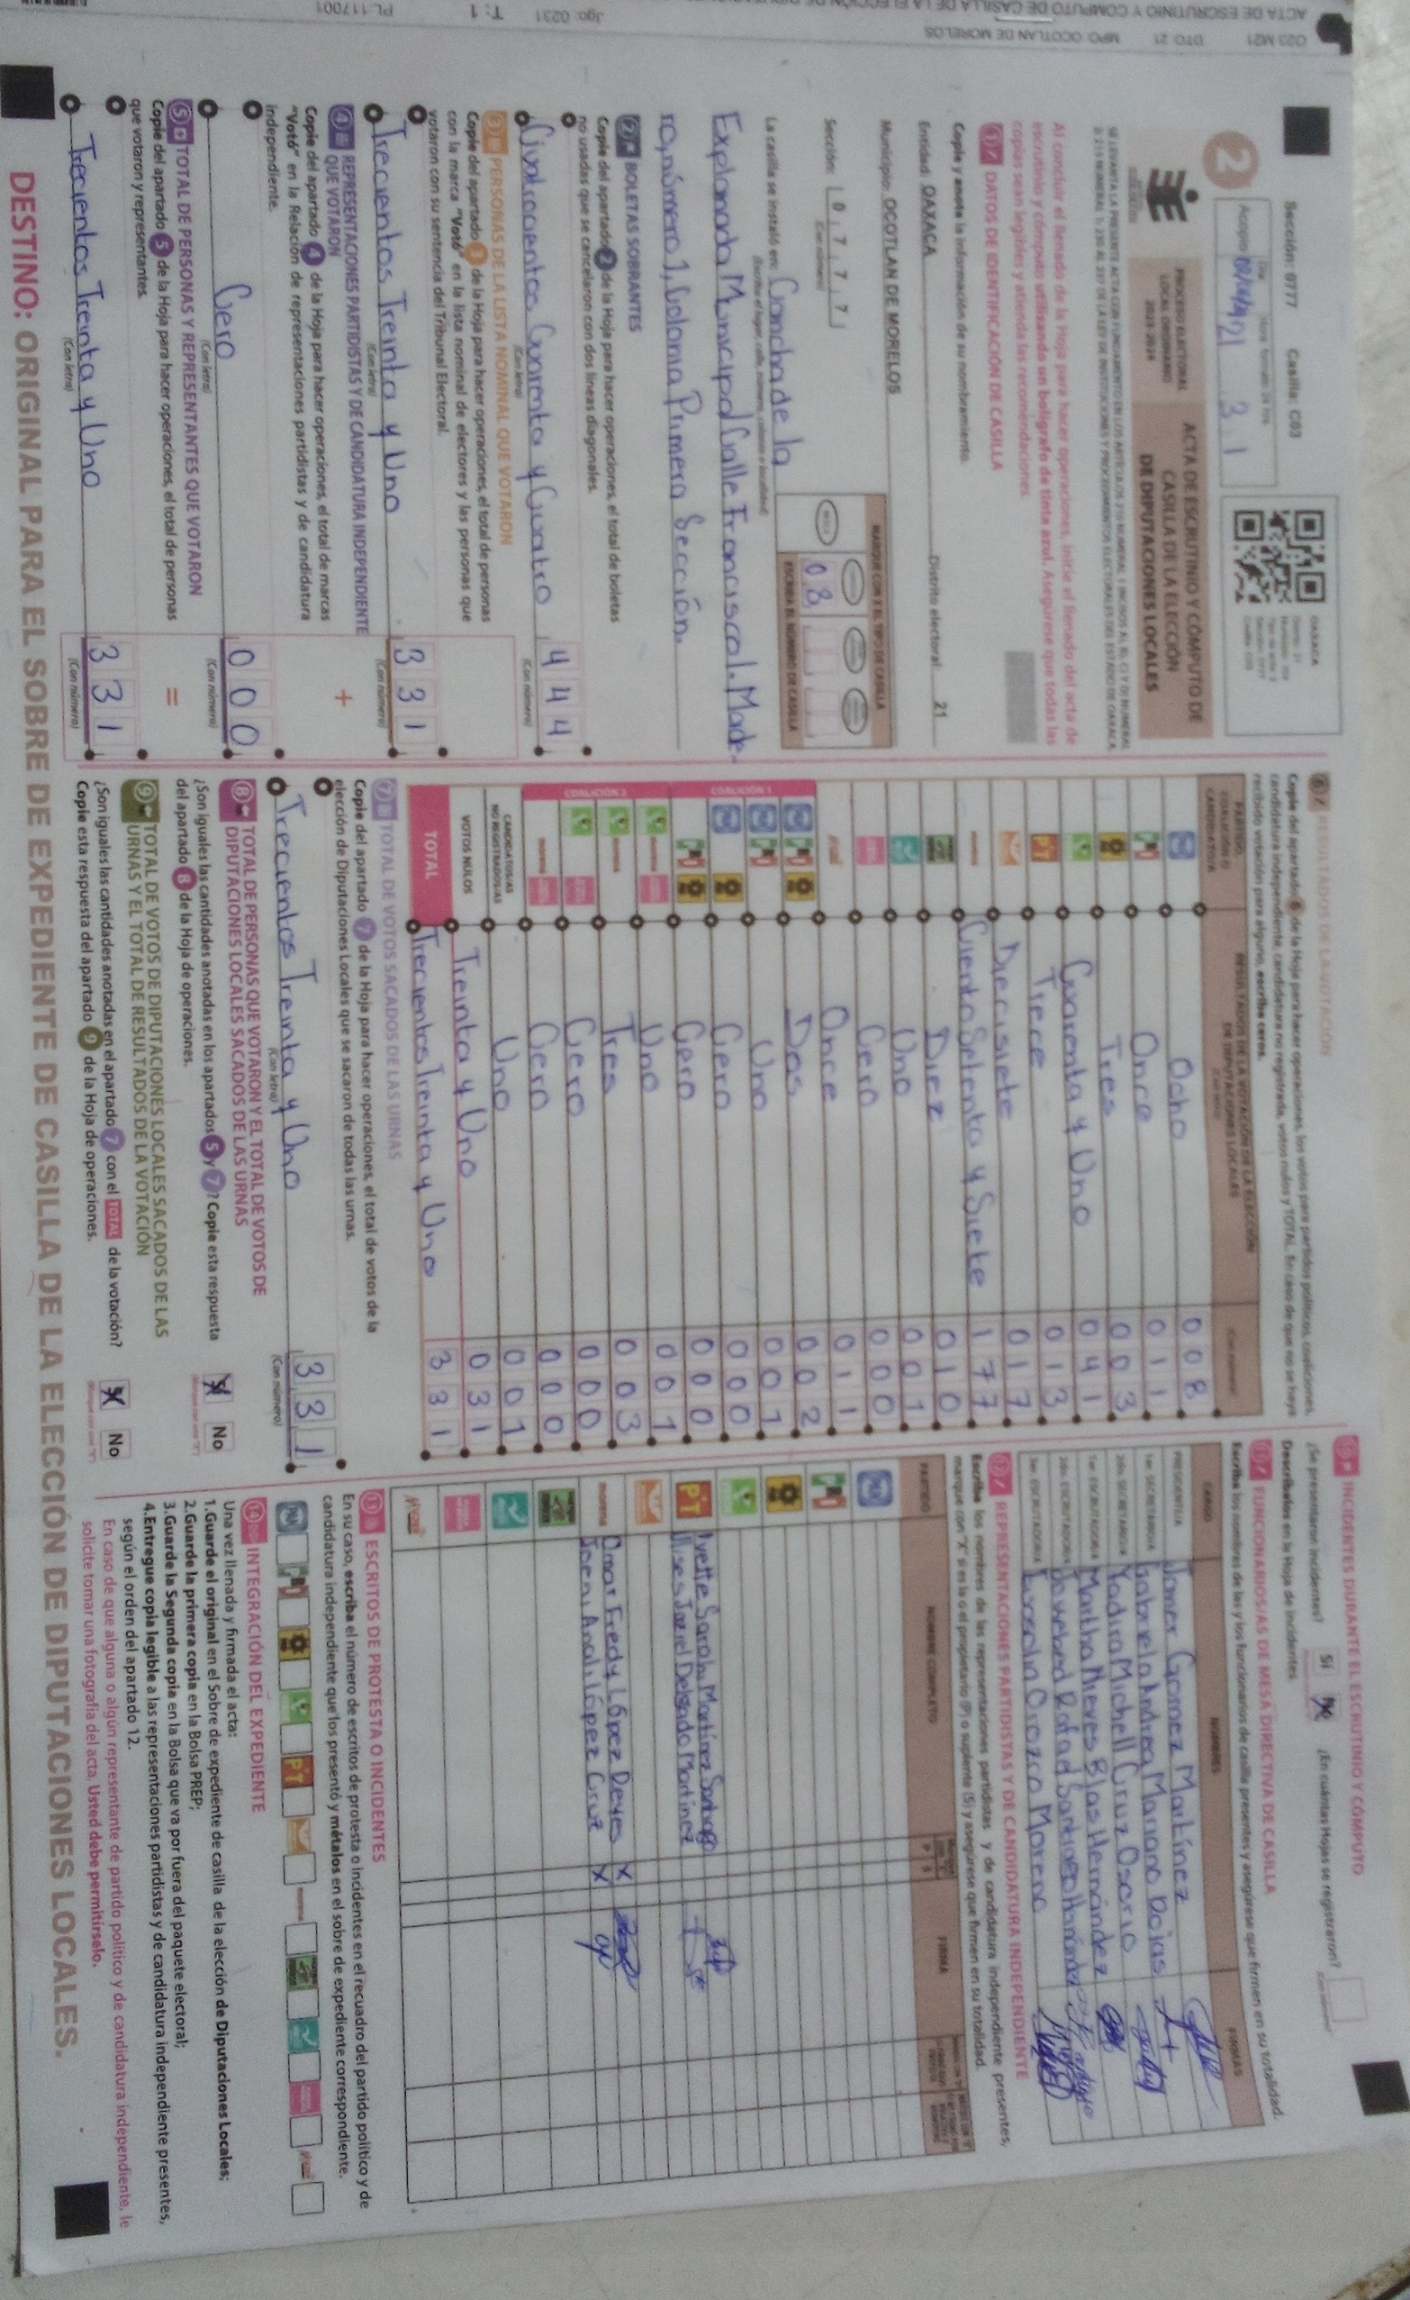 ACTA DE ESCRUTINIO Y CÓMPUTO DE CASILLA DE LA ELECCIÓN DE
O23 M21 DTO: 21 MPO: OCOTLAN DE MORELOS
Jgo: 0231 T: 1 PL-117001
Sección: 0777 Casilla: C03
2
Acopio
21 3 1
OAXACA
PROCESO ELECTORAL
LOCAL ORDINARIO
2023-2024
ACTA DE ESCRUTINIO Y CÓMPUTO DE
CASILLA DE LA ELECCIÓN
DE DIPUTACIONES LOCALES
Al concluir el llenado de la Hoja para hacer operaciones, inicie el llenado del acta de
escrutinio y cómputo utilizando un bolígrafo de tinta azul. Asegúrese que todas las
copias sean legibles y atienda las recomendaciones.
1 DATOS DE IDENTIFICACIÓN DE CASILLA
Copie y anote la información de su nombramiento.
Entidad: OAXACA Distrito electoral 21
Municipio: OCOTLAN DE MORELOS
Sección: 0 7 7 7
(Con número)
MARQUE CON X EL TIPO DE CASILLA
ESCRIBA EL NÚMERO DE CASILLA
0 3
La casilla se instaló en: Cancha de la
Explanada Municipal Calle Francisco I. Made-
ro, número 1, Colonia Primera Sección.
2 BOLETAS SOBRANTES
Copie del apartado 2 de la Hoja para hacer operaciones, el total de boletas
no usadas que se cancelaron con dos líneas diagonales.
Cuatrocientos Cuarenta y Cuatro 4 4 4
(Con letra) (Con número)
3 PERSONAS DE LA LISTA NOMINAL QUE VOTARON
Copie del apartado 3 de la Hoja para hacer operaciones, el total de personas
con la marca "Votó" en la lista nominal de electores y las personas que
votaron con su sentencia del Tribunal Electoral.
Trecientos Treinta y Uno 3 3 1
(Con letra) (Con número)
4 REPRESENTACIONES PARTIDISTAS Y DE CANDIDATURA INDEPENDIENTE
QUE VOTARON +
Copie del apartado 4 de la Hoja para hacer operaciones, el total de marcas
"Votó" en la Relación de representaciones partidistas y de candidatura
independiente.
Cero 0 0 0
(Con letra) (Con número)
5 TOTAL DE PERSONAS Y REPRESENTANTES QUE VOTARON
Copie del apartado 5 de la Hoja para hacer operaciones, el total de personas =
que votaron y representantes.
Trecientos Treinta y Uno 3 3 1
(Con letra) (Con número)
6 RESULTADOS DE LA VOTACIÓN
Copie del apartado 6 de la Hoja para hacer operaciones, los votos para partidos políticos, coaliciones,
candidatura independiente, candidatura no registrada, votos nulos y TOTAL. En caso de que no se haya
recibido votación para alguno, escriba ceros.
RESULTADOS DE LA VOTACIÓN DE LA ELECCIÓN
DE DIPUTACIONES LOCALES
PAN Ocho 0 0 8
PRI Once 0 1 1
Tres 0 0 3
Cuarenta y Uno 0 4 1
PT Trece 0 1 3
Diecisiete 0 1 7
morena Ciento Setenta y Siete 1 7 7
Diez 0 1 0
Uno 0 0 1
Cero 0 0 0
Once 0 1 1
COALICIÓN 1
Dos 0 0 2
Uno 0 0 1
Cero 0 0 0
Cero 0 0 0
COALICIÓN 2
Uno 0 0 1
Tres 0 0 3
Cero 0 0 0
Cero 0 0 0
CANDIDATOS/AS
NO REGISTRADOS/AS Uno 0 0 1
VOTOS NULOS Treinta y Uno 0 3 1
TOTAL Trecientos Treinta y Uno 3 3 1
7 TOTAL DE VOTOS SACADOS DE LAS URNAS
Copie del apartado 7 de la Hoja para hacer operaciones, el total de votos de la
elección de Diputaciones Locales que se sacaron de todas las urnas.
Trecientos Treinta y Uno 3 3 1
(Con letra) (Con número)
8 TOTAL DE PERSONAS QUE VOTARON Y EL TOTAL DE VOTOS DE
DIPUTACIONES LOCALES SACADOS DE LAS URNAS
¿Son iguales las cantidades anotadas en los apartados 5 y 7? Copie esta respuesta
del apartado 8 de la Hoja de operaciones. Sí No
9 TOTAL DE VOTOS DE DIPUTACIONES LOCALES SACADOS DE LAS
URNAS Y EL TOTAL DE RESULTADOS DE LA VOTACIÓN
¿Son iguales las cantidades anotadas en el apartado 7 con el TOTAL de la votación?
Copie esta respuesta del apartado 9 de la Hoja de operaciones. Sí No
10 INCIDENTES DURANTE EL ESCRUTINIO Y CÓMPUTO
¿Se presentaron incidentes? Sí No ¿En cuántas Hojas se registraron?
Descríbalos en la Hoja de incidentes.
11 FUNCIONARIOS/AS DE MESA DIRECTIVA DE CASILLA
Escriba los nombres de las y los funcionarios de casilla presentes y asegúrese que firmen en su totalidad.
CARGO NOMBRES FIRMAS
PRESIDENTE/A Gomez Martínez
1er. SECRETARIO/A Gabriela Andrea Mariano Rojas
2do. SECRETARIO/A Yadira Michell Cruz Osorio
1er. ESCRUTADOR/A Martha Nieves Blas Hernández
2do. ESCRUTADOR/A
3er. ESCRUTADOR/A Orozco Moreno
12 REPRESENTACIONES PARTIDISTAS Y DE CANDIDATURA INDEPENDIENTE
Escriba los nombres de las representaciones partidistas y de candidatura independiente presentes,
marque con "X" si es la o el propietario (P) o suplente (S) y asegúrese que firmen en su totalidad.
PARTIDO NOMBRE COMPLETO P S FIRMA
PAN
PRI
PT Ivette Sarahi Martínez Santiago
Ulises Jaziel Delgado Martinez
morena Omar Fredy López Reyes X
Joeni Anahi López Cruz X
13 ESCRITOS DE PROTESTA O INCIDENTES
En su caso, escriba el número de escritos de protesta o incidentes en el recuadro del partido político y de
candidatura independiente que los presentó y métalos en el sobre de expediente correspondiente.
14 INTEGRACIÓN DEL EXPEDIENTE
Una vez llenada y firmada el acta:
1.Guarde el original en el Sobre de expediente de casilla de la elección de Diputaciones Locales;
2.Guarde la primera copia en la Bolsa PREP;
3.Guarde la Segunda copia en la Bolsa que va por fuera del paquete electoral;
4.Entregue copia legible a las representaciones partidistas y de candidatura independiente presentes,
según el orden del apartado 12.
En caso de que alguna o algún representante de partido político y de candidatura independiente, le
solicite tomar una fotografía del acta, Usted debe permitírselo.
DESTINO: ORIGINAL PARA EL SOBRE DE EXPEDIENTE DE CASILLA DE LA ELECCIÓN DE DIPUTACIONES LOCALES.